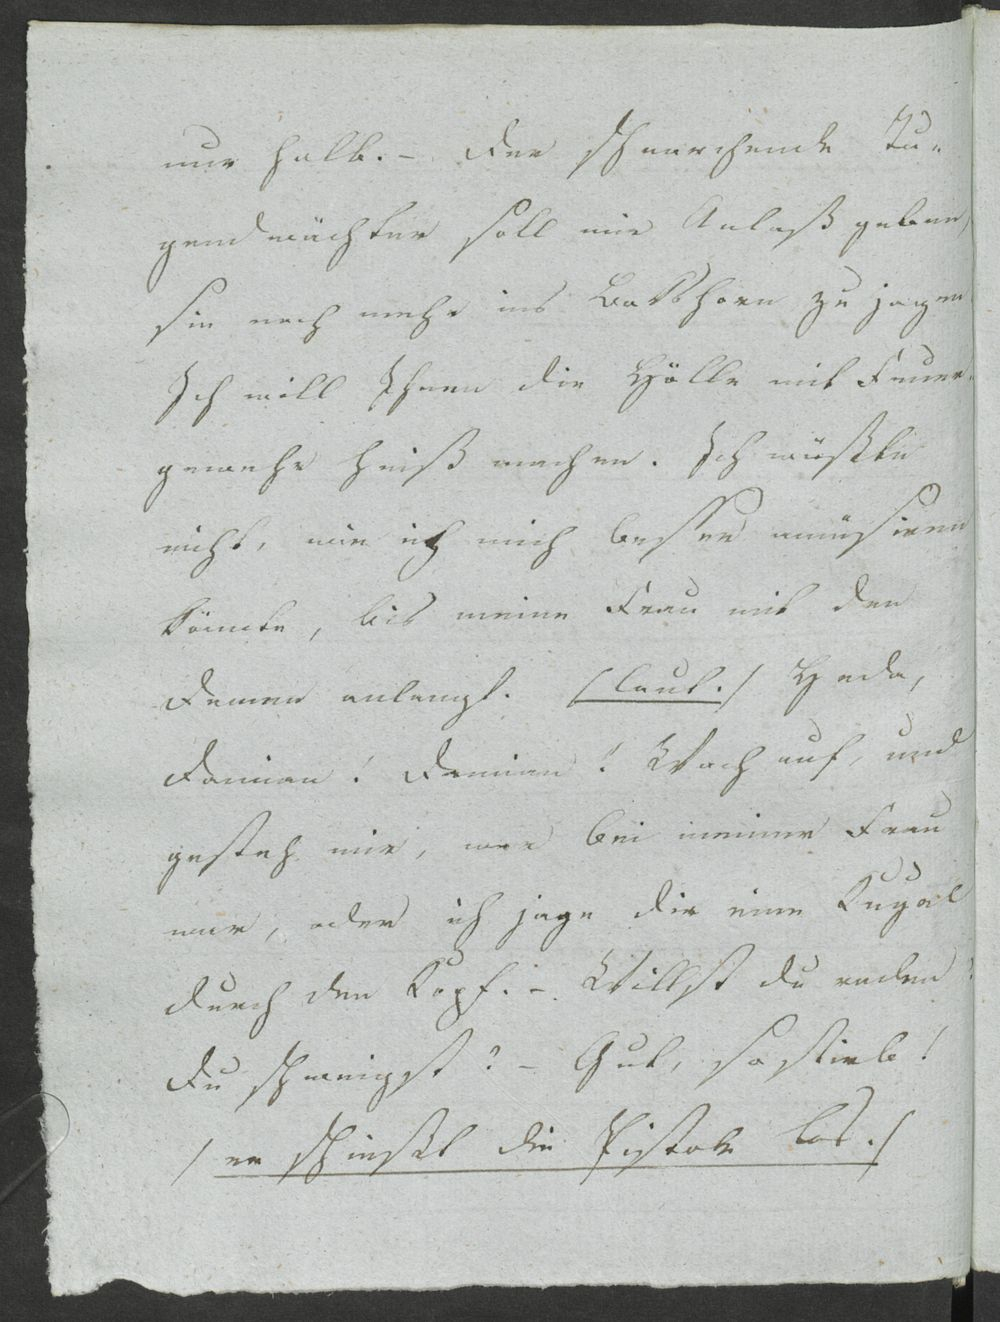 nur halb. – Der schnarchende Tu-
gendwächter soll mir Anlaß geben,
sie noch mehr ins Bokshorn zu jagen
Ich will Ihnen die Hölle mit Feuer-
gewehr heiß machen. Ich wüßte
nicht, wie ich mich besser amüsiren
könnte, bis meine Frau mit den
Damen anlangt. /laut./ Heda,
Damian! Damian! Wach auf, und
gesteh mir, wer bei meiner Frau
war, oder ich jage dir eine Kugel
durch den Kopf. – Willst du reden?
Du schweigst? – Gut, so stirb!
/ er schießt die Pistole los. /